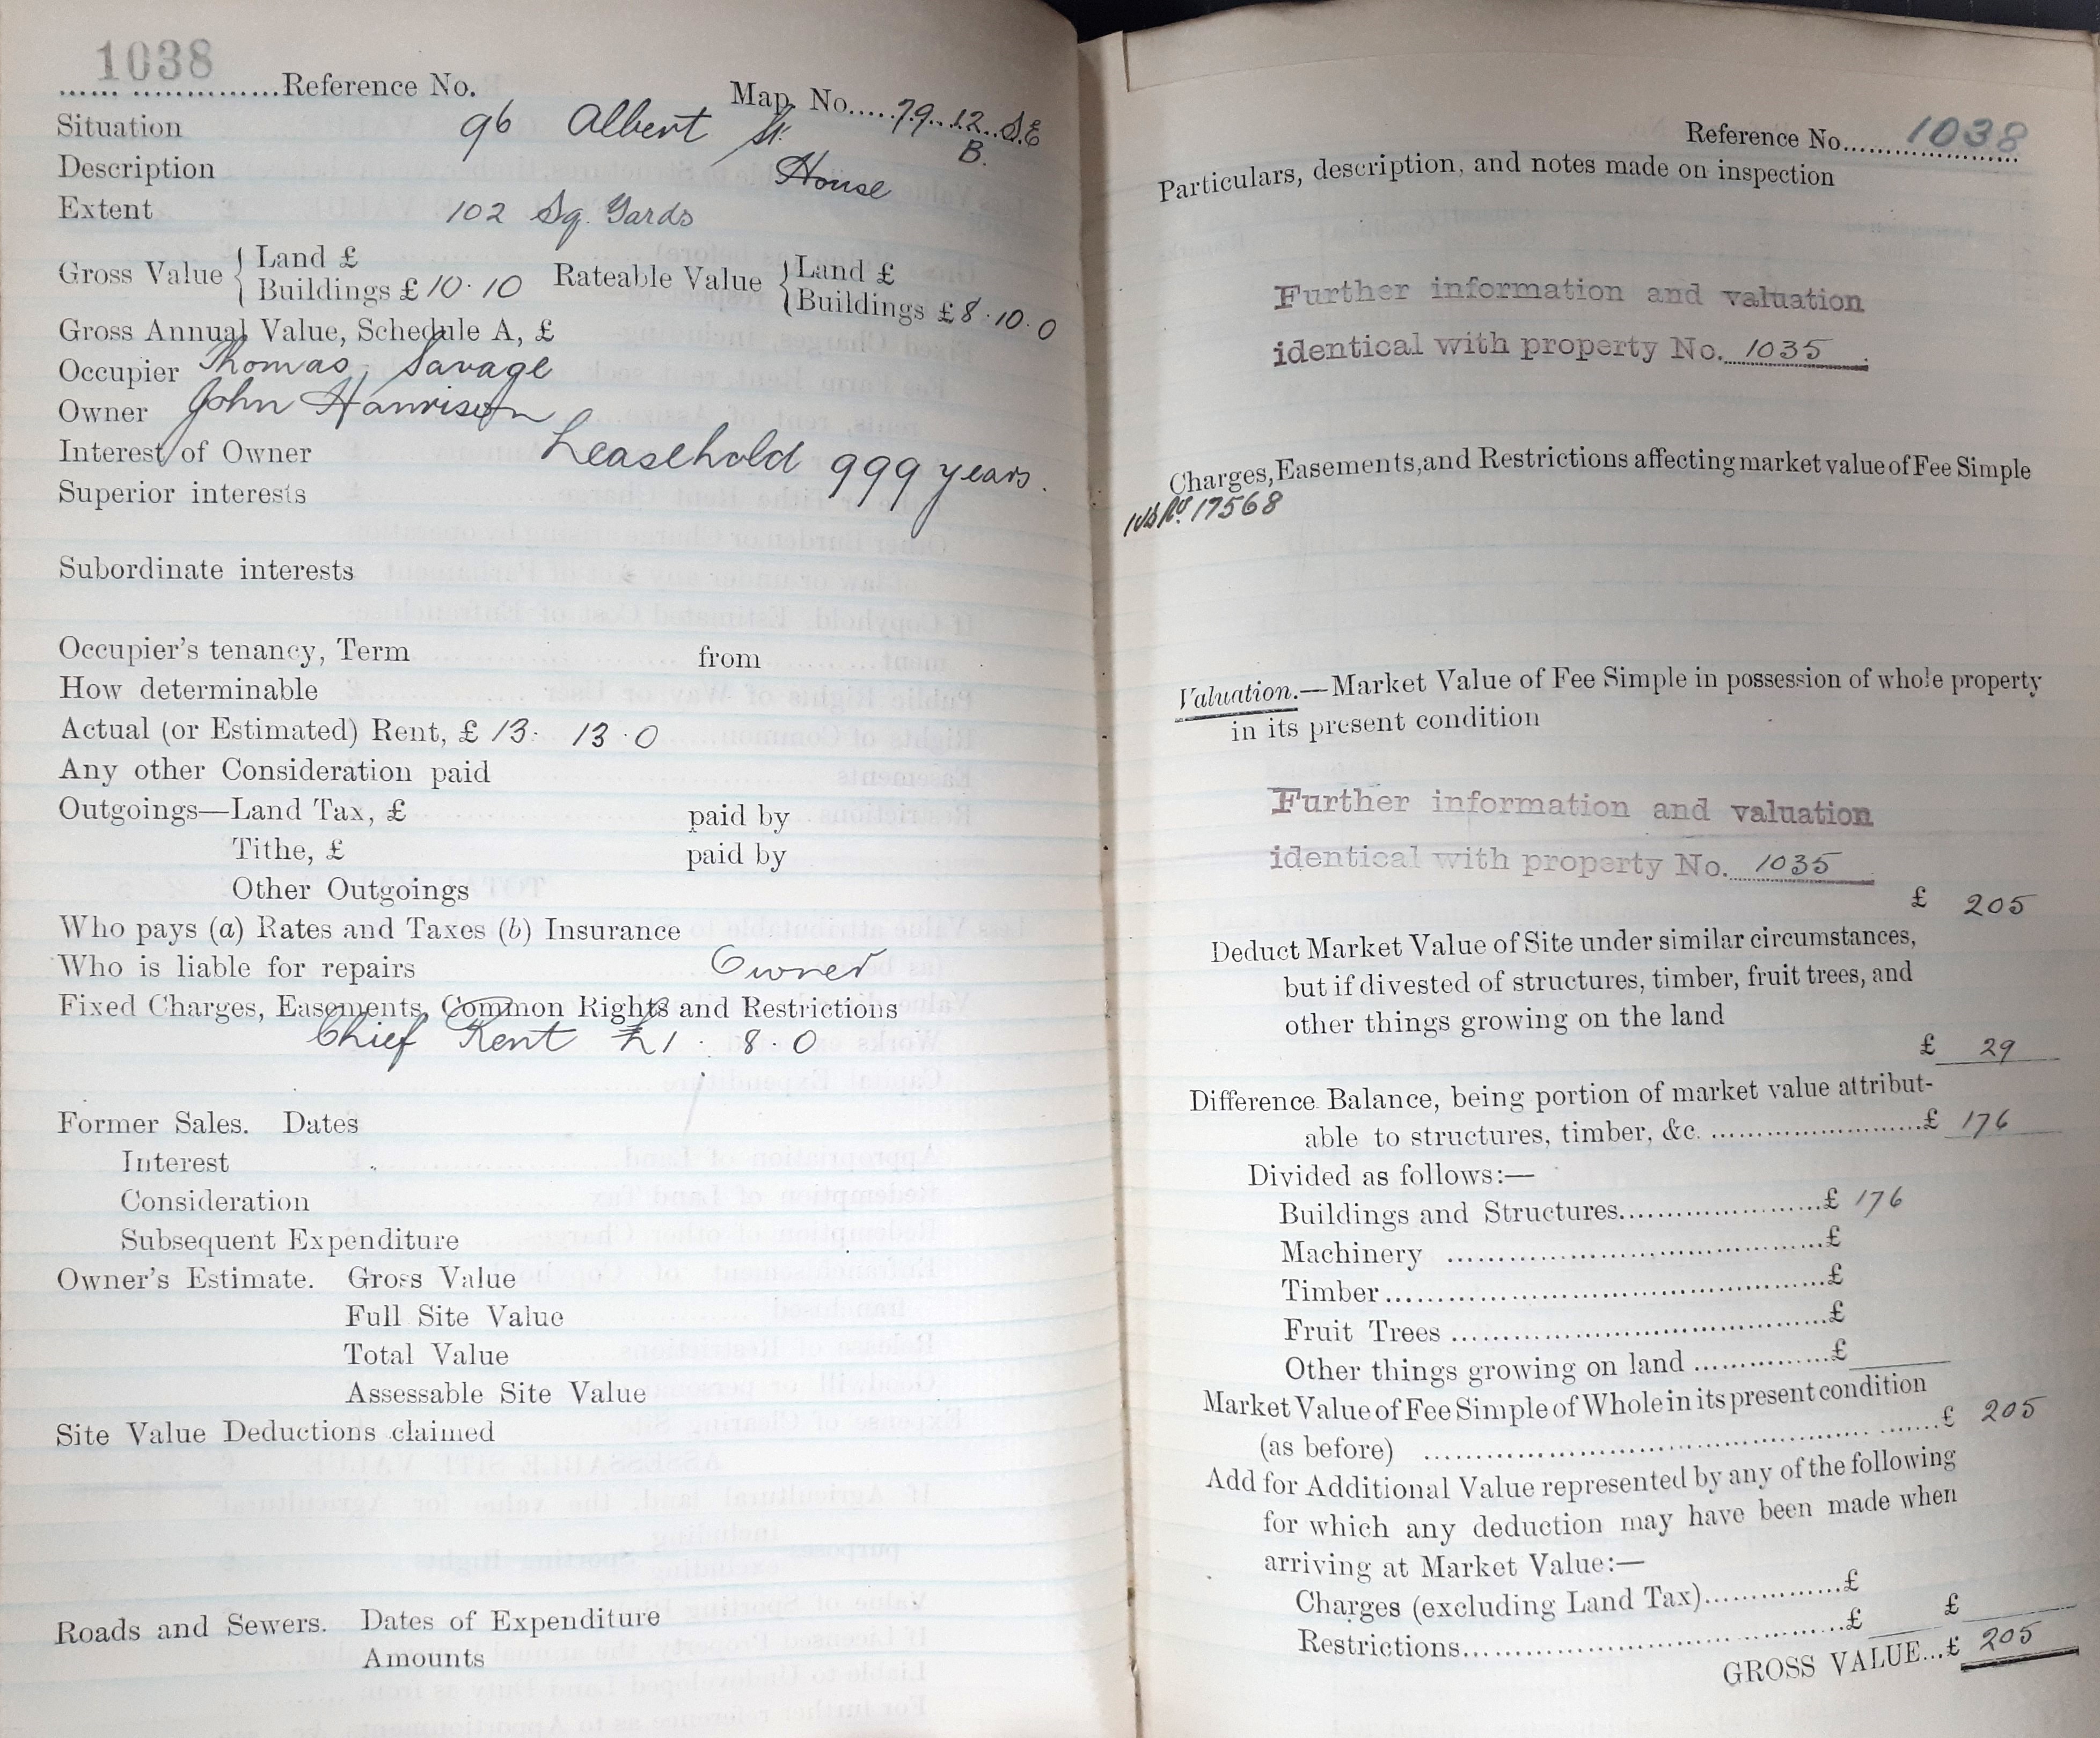 1038
...... ..............Reference No.
Map. No.....79..12..S.E
B.
Situation 96 Albert St.
Description House
Extent 102 Sq. Yards
Gross Value { Land £
Buildings £ 10. 10 Rateable Value { Land £
Buildings £ 8. 10. 0
Gross Annual Value, Schedule A, £
Occupier Thomas Savage
Owner John Harrison
Interest of Owner Leasehold 999 years.
Superior interests
Subordinate interests
Occupier's tenancy, Term from
How determinable
Actual (or Estimated) Rent, £ 13. 13. 0
Any other Consideration paid
Outgoings—Land Tax, £ paid by
Tithe, £ paid by
Other Outgoings
Who pays (a) Rates and Taxes (b) Insurance
Who is liable for repairs Owner
Fixed Charges, Easements, Common Rights and Restrictions
Chief Rent £1. 8. 0
Former Sales. Dates
Interest
Consideration
Subsequent Expenditure
Owner's Estimate. Gross Value
Full Site Value
Total Value
Assessable Site Value
Site Value Deductions claimed
Roads and Sewers. Dates of Expenditure
Amounts
Reference No. 1038
Particulars, description, and notes made on inspection
Further information and valuation
identical with property No. 1035
Charges, Easements, and Restrictions affecting market value of Fee Simple
No. 17568
Valuation.—Market Value of Fee Simple in possession of whole property
in its present condition
Further information and valuation
identical with property No. 1035
£ 205
Deduct Market Value of Site under similar circumstances,
but if divested of structures, timber, fruit trees, and
other things growing on the land
£ 29
Difference Balance, being portion of market value attribut-
able to structures, timber, &c. ........................£ 176
Divided as follows:—
Buildings and Structures.......................£ 176
Machinery .......................................£
Timber.............................................£
Fruit Trees .......................................£
Other things growing on land ................£
Market Value of Fee Simple of Whole in its present condition
(as before) .......................................................£ 205
Add for Additional Value represented by any of the following
for which any deduction may have been made when
arriving at Market Value:—
Charges (excluding Land Tax)..............£
Restrictions........................................£ £
GROSS VALUE...£ 205